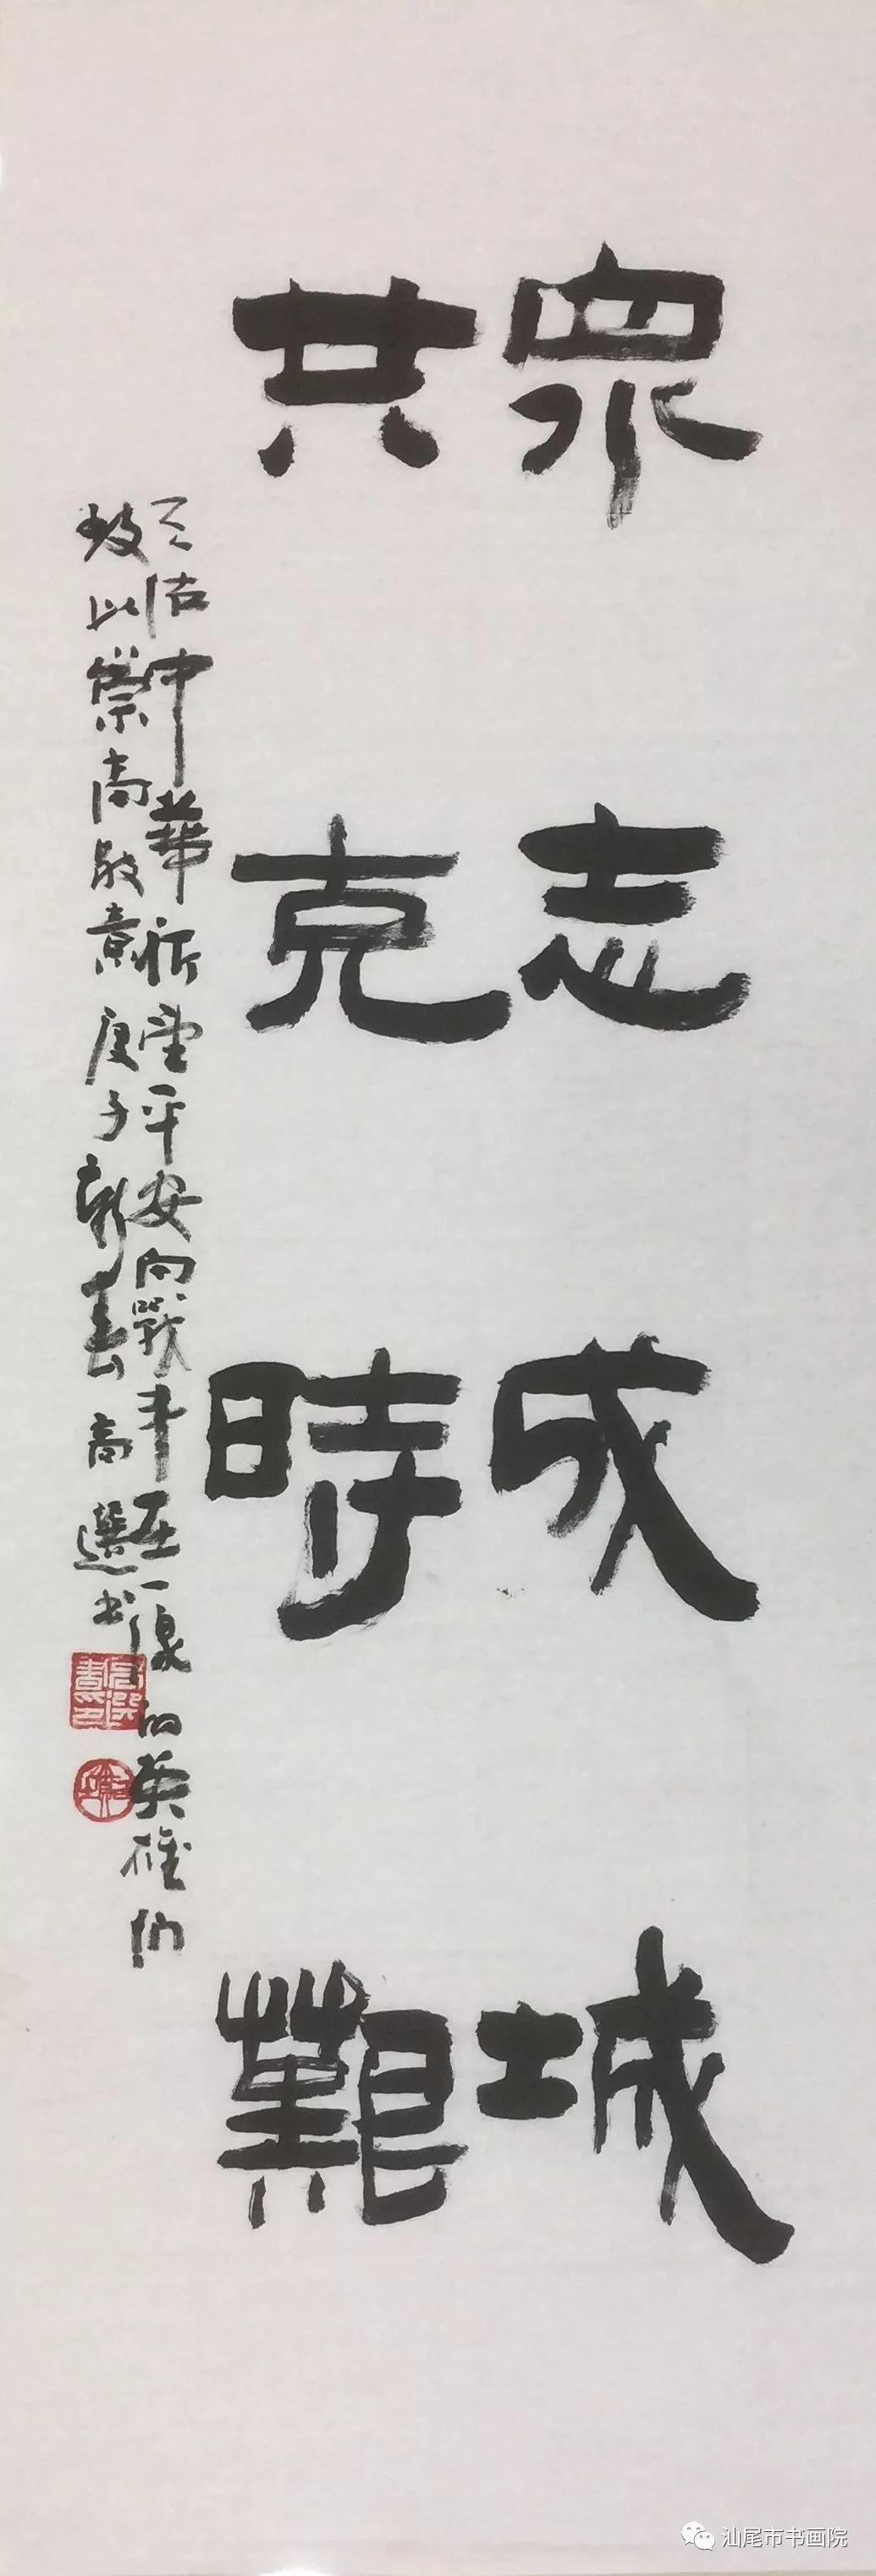 眾志成城
共克時艱
天佑中華祈望平安向戰斗在一線的英雄们
致以崇高敬意庚子新春高選书
汕尾市书画院